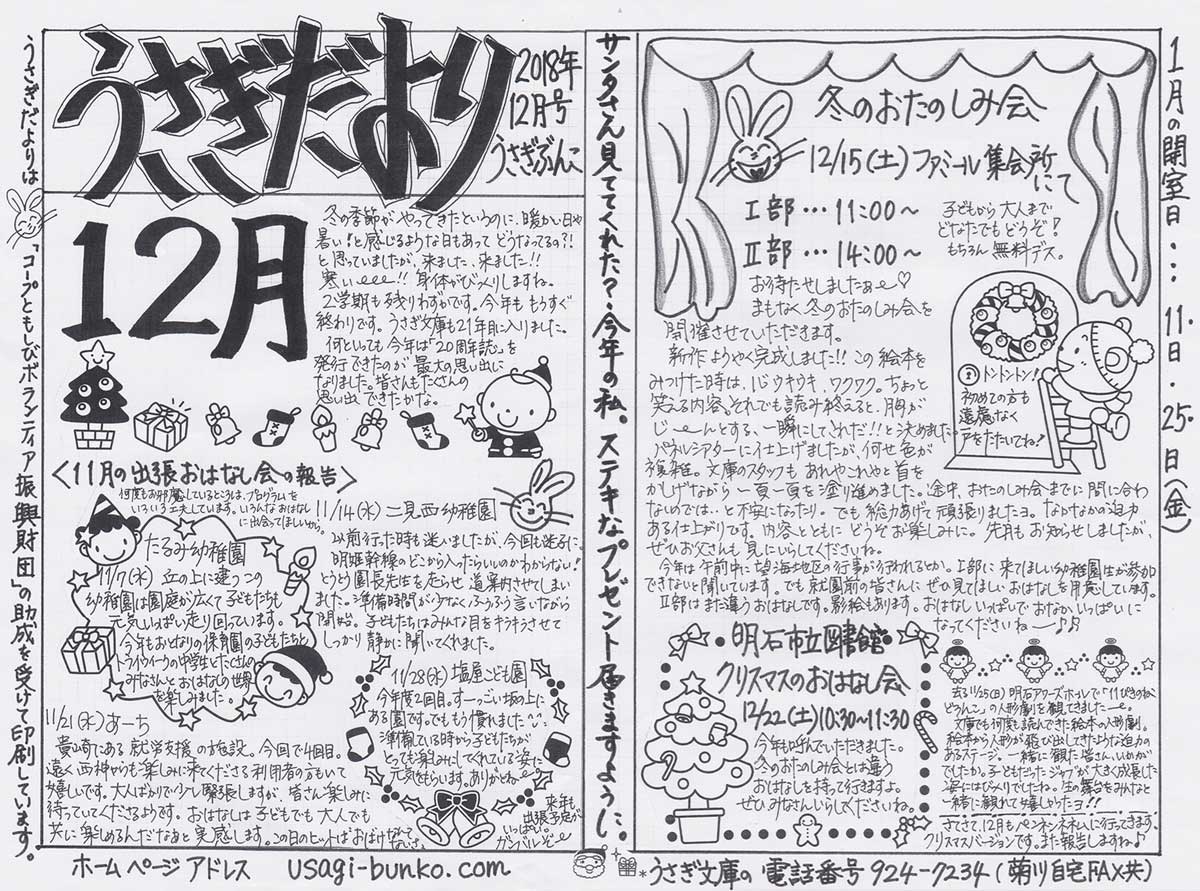 うさぎだより
2018年
12月号
うさぎぶんこ
うさぎだよりは「コープともしびボランティア振興財団」の助成を受けて印刷しています。
12月
冬の季節がやってきたというのに、暖かい日や
暑い!と感じるような日もあってどうなってるの?!
と思っていましたが、来ました、来ました!!
寒い〜!! 身体がびっくりしますね。
2学期も残りわずかです。今年ももうすぐ
終わりです。うさぎ文庫も21年目に入りました。
何といっても今年は「20周年誌」を
発行できたのが最大の思い出に
なりました。皆さんもたくさんの
思い出できたかな。
〈11月の出張おはなし会の報告〉
何度もお邪魔しているところは、プログラムを
いろいろ工夫しています。いろんなおはなし
に出会ってほしいから。
たるみ幼稚園
11/7(水) 丘の上に建つこの
幼稚園は園庭が広くて子どもたちも
元気いっぱい走り回っています。
今年もおとなりの保育園の子どもたちと
トライやウィークの中学生とたくさんの
みなさんとおはなしの世界
を楽しみました。
11/14(水) 二見西幼稚園
以前行った時も迷いましたが、今回も迷子に。
明姫幹線のどこから入ったらいいのかわからない!
とうとう園長先生を走らせ道案内させてしまい
ました。準備時間が少なくふうふう言いながら
開始。子どもたちはみんな目をキラキラさせて
しっかり静かに聞いてくれました。
11/21(水) あーち
貴崎である就労支援の施設。今回で4回目。
遠く西神からも楽しみに来てくださる利用者の方もいて
嬉しいです。大人ばかりで少し緊張しますが、皆さん楽しみに
待っていてくださるようです。おはなしは子どもでも大人でも
共に楽しめるんだなあと実感します。この日のヒットは「おばけなんてないさ」
11/28(水) 塩屋こども園
今年度2回目。すーっごい坂の上に
ある園です。でももう慣れました〜。
準備している時から子どもたちが
とっても楽しみにしてくれている姿に
元気をもらいます。ありがとね〜
来年も
出張予定が
いっぱい。
ガンバルぞー
ホームページアドレス usagi-bunko.com
サンタさん見ててくれた?今年の私。ステキなプレゼント届きますように。
冬のおたのしみ会
12/15(土) ファミール集会所にて
Ⅰ部…11:00〜
Ⅱ部…14:00〜
子どもから大人まで
どなたでもどうぞ!
もちろん無料デス。
お待たせしましたぁ〜♡
まもなく冬のおたのしみ会を
開催させていただきます。
新作ようやく完成しました!!この絵本を
みつけた時は、心ウキウキ、ワクワク。ちょっと
笑える内容。それでも読み終えると、胸が
じ〜んとする、一瞬にして「これだ!!」と決めました。
パネルシアターに仕上げましたが、何せ色が
複雑。文庫のスタッフもあれやこれやと首を
かしげながら一頁一頁を塗り進めました。途中、おたのしみ会までに間に合わ
ないのでは…と不安になったり。でも総力あげて頑張りましたヨ。なかなかの迫力
ある仕上がりです。内容とともにどうぞお楽しみに。先月もお知らせしましたが、
ぜひお父さんも見にいらしてくださいね。
今年は午前中に望海地区の行事が行われるとか。Ⅰ部に来てほしい幼稚園生が参加
できないと聞いています。でも就園前の皆さんにぜひ見てほしいおはなしを用意しています。
Ⅱ部はまた違うおはなしです。影絵もあります。おはなしいっぱいでおなかいっぱいに
なってくださいね〜♪♪
トントントン!
初めての方も
遠慮なく
ドアをたたいてね!
明石市立図書館
クリスマスのおはなし会
12/22(土)10:30~11:30
今年も呼んでいただきました。
冬のおたのしみ会とは違う
おはなしを持って行きますよ。
ぜひみなさんいらしてくださいね。
去る11/25(日)明石アワーズホールで「11ぴきのねこ
どろんこ」の人形劇を観てきました〜。
文庫でも何度も読んできた絵本の人形劇。
絵本から人形が飛び出してきたような迫力の
あるステージ。一緒に観た皆さん、いかが
でしたか。子どもだったジャブが大きく成長した
姿にはびっくりでしたね。生の舞台をみんなと
一緒に観れて嬉しかったヨ!!
さてさて、12月もペネンネネムに行ってきます。
クリスマスバージョンです。また報告しますね♪
1月の開室日…11日・25日(金)
*うさぎ文庫の電話番号 924-7234 (菊川自宅FAX共)